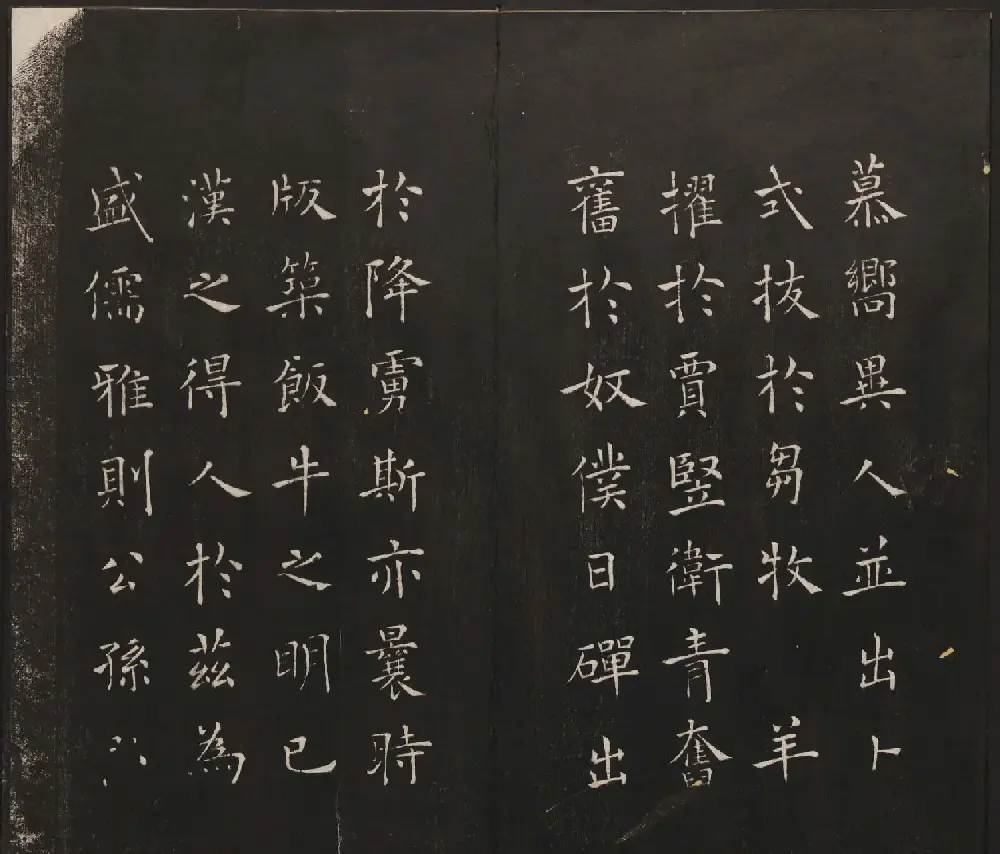 慕嚮異人並出卜
式拔於芻牧羊
擢於賈竪衛青奮
奮於奴僕日磾出
於降虜斯亦曩時
版築飯牛之明已
漢之得人於茲為
盛儒雅則公孫